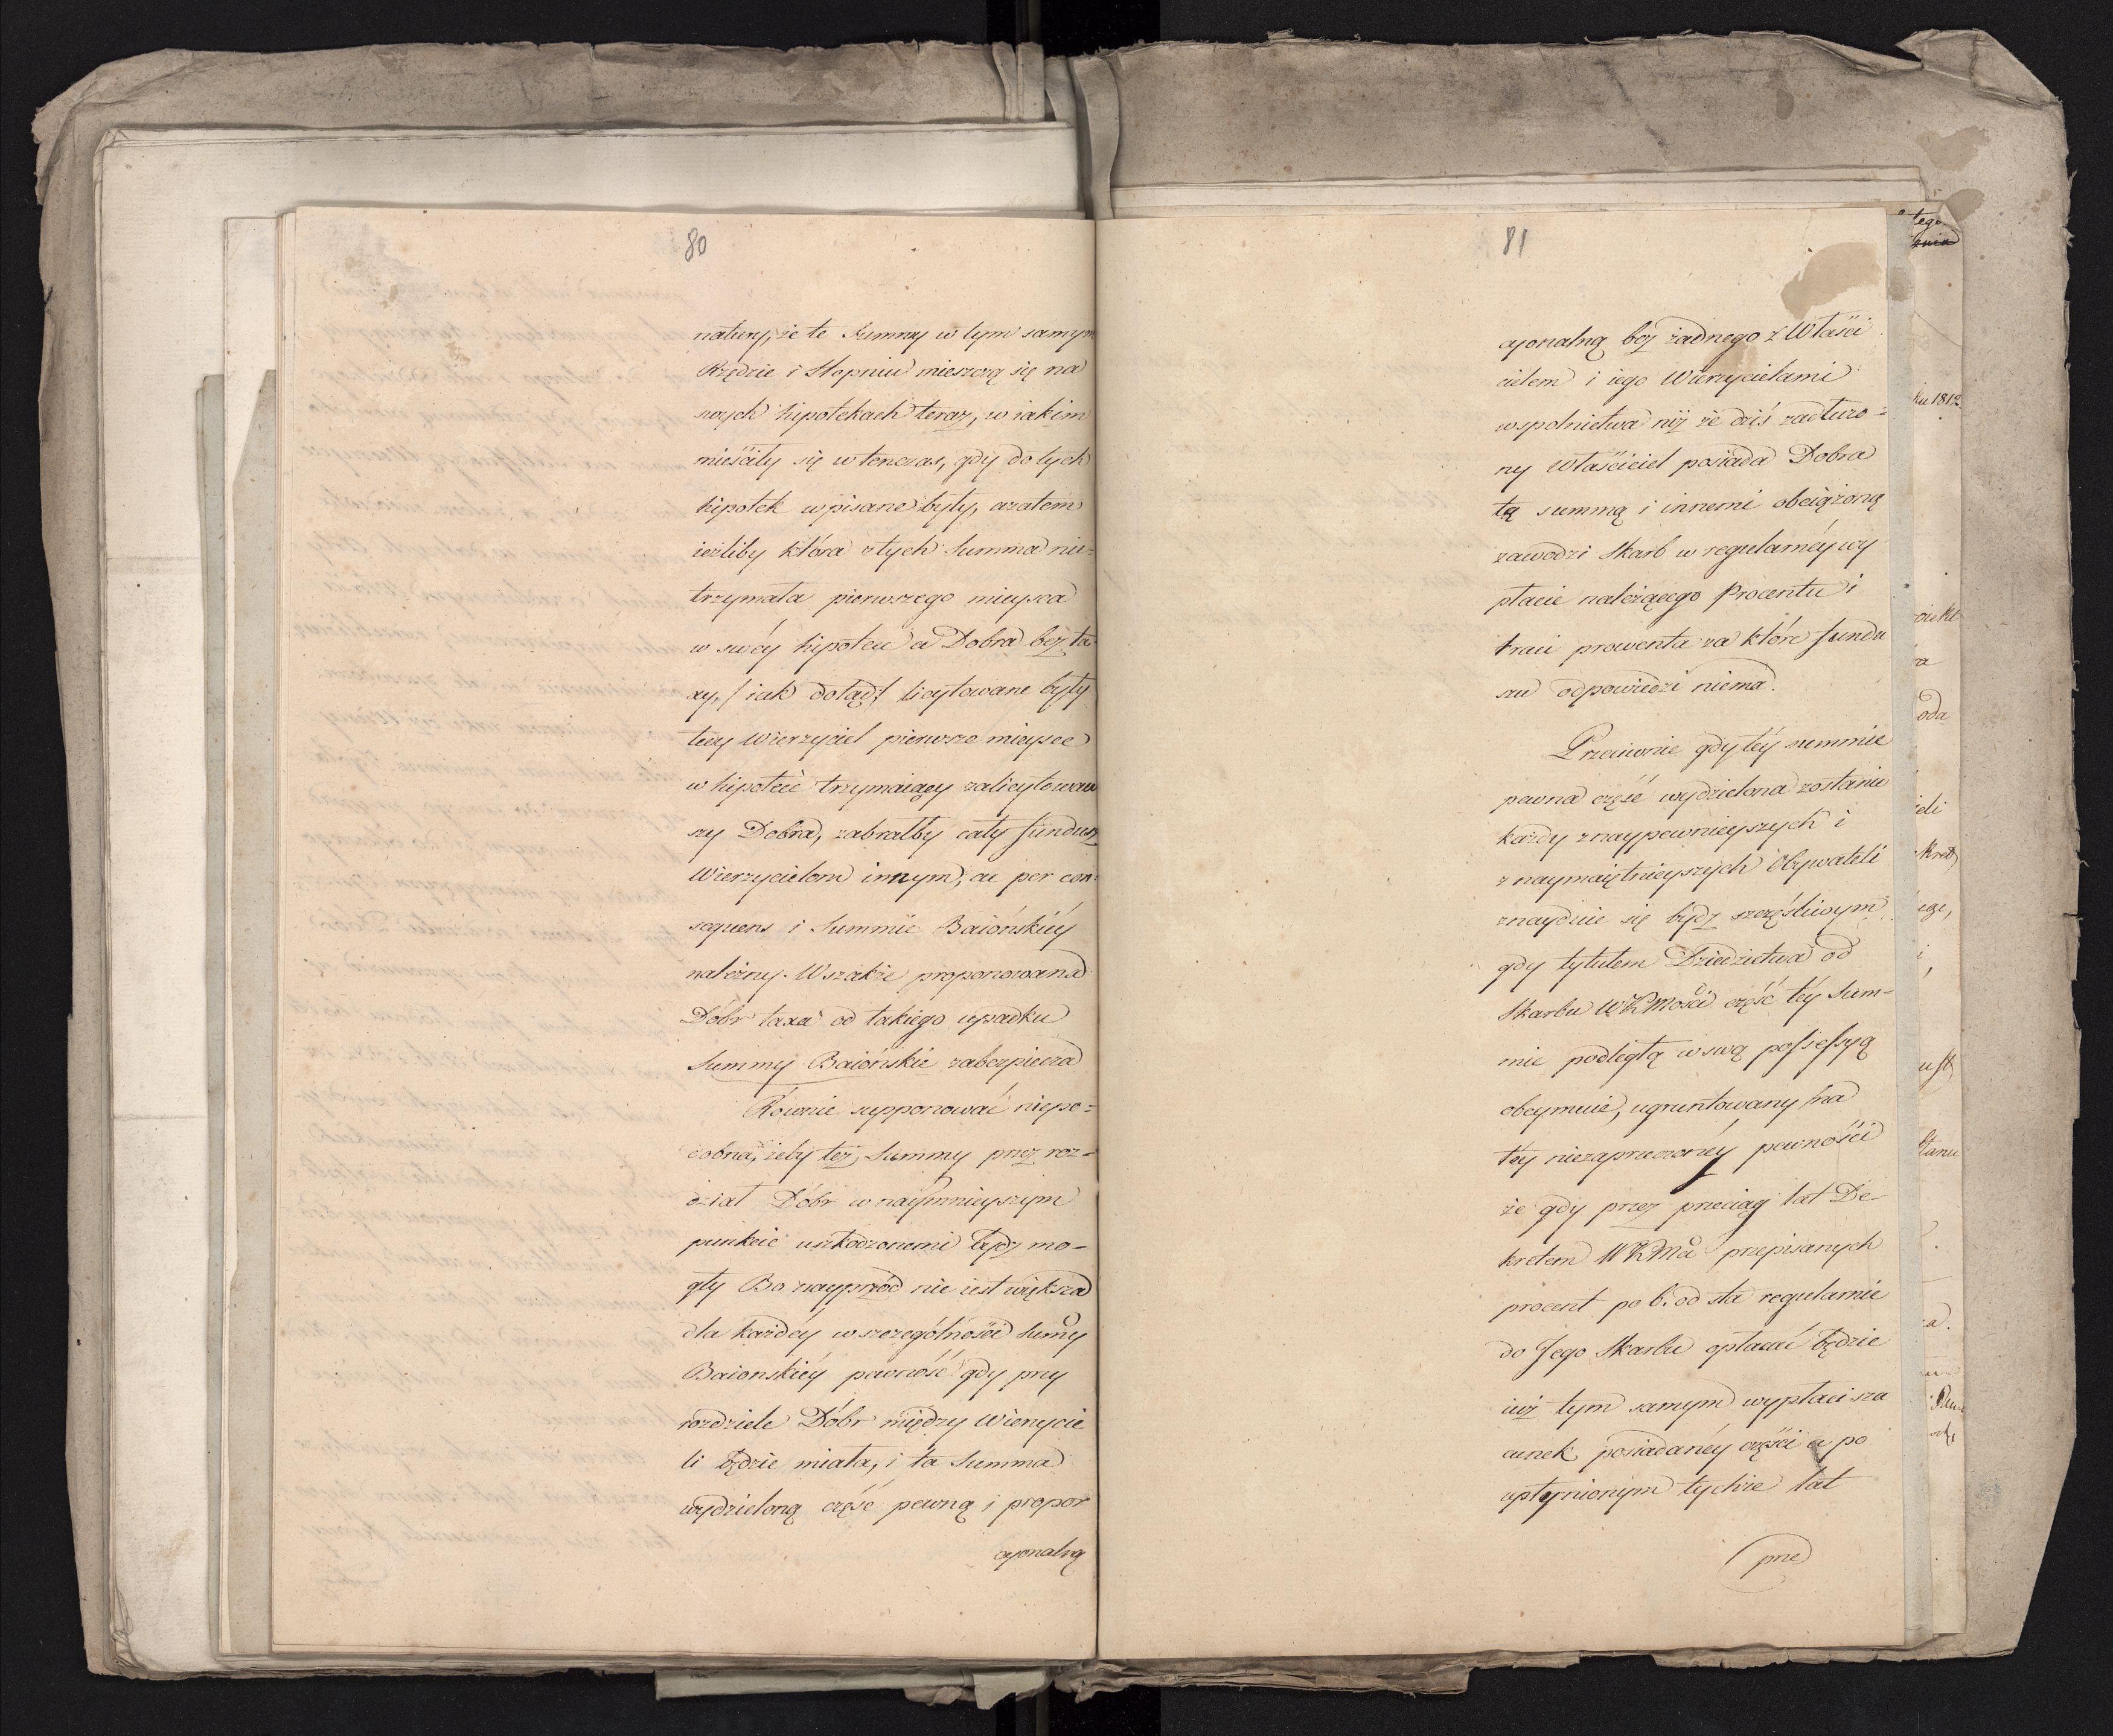 80
natury, że te Summy w tym samym
Rzędzie i Stopniu mieszczą się na
swych hipotekach teraz, w iakim
mieściły się w tenczas, gdy do tych
hipotek wpisane były, azatem
ieżliby która z tych Summa nie-
trzymała pierwszego mieysca
w swéy hipotece a Dobra bez ta-
xy, / iak dotąd / licytowane były
tedy Wierzyciel pierwsze mieysce
w hipotece trzymaiący zalicytowaw
szy Dobra, zabrałby cały fundusz
Wierzycielom innym, a per con-
sequens i Summie Baiońskiéy
należny. Wszakże proponowana
Dóbr taxa od takiego upadku
Summy Baiońskie zabezpiecza
Rownie supponować niepo-
dobna, żeby też Summy przez roz-
dział Dóbr w naymnieyszym
punkcie uszkodzonemi bydz mo-
gły Bo nayprzód nie iest większa
dla każdéy w szczególności Sumy
Baionskiéy pewność gdy przy
rozdziele Dóbr między Wierzycie
li będzie miała, i ta Summa
wydzieloną część pewną i propor
cyonalną
81
cyonalną bez żadnego z Właści
cielem i iego Wierzycielami
wspolnictwa niż że dziś zadłużo-
ny Właściciel posiada Dobra
tą summą i innemi obciążoną
zawodzi Skarb w regularnéy wy
płacie należącego Procentu i
traci prowenta za które fundu
szu odpowiedzi niema.
Przeciwnie gdy téy summie
pewna część wydzielona zostanie
każdy z naypewnieyszych i
z naymaiętnieyszych Obywateli
znaydzie się bydz szczęśliwym
gdy tytułem Dziedzictwa od
Skarbu WKMości część téy Sum-
mie podległą w swą possessyą
obeymuie, ugruntowany na
téy niezaprzeczonéy pewności
że gdy przez przeciąg lat De-
kretem WKMci przepisanych
procent po 6. od sta regularnie
do Jego Skarbu opłacać będzie
iuż tym samym wypłaci sza
cunek posiadanéy części a po
upłynionym tychże lat
prze
tego
ku 1812